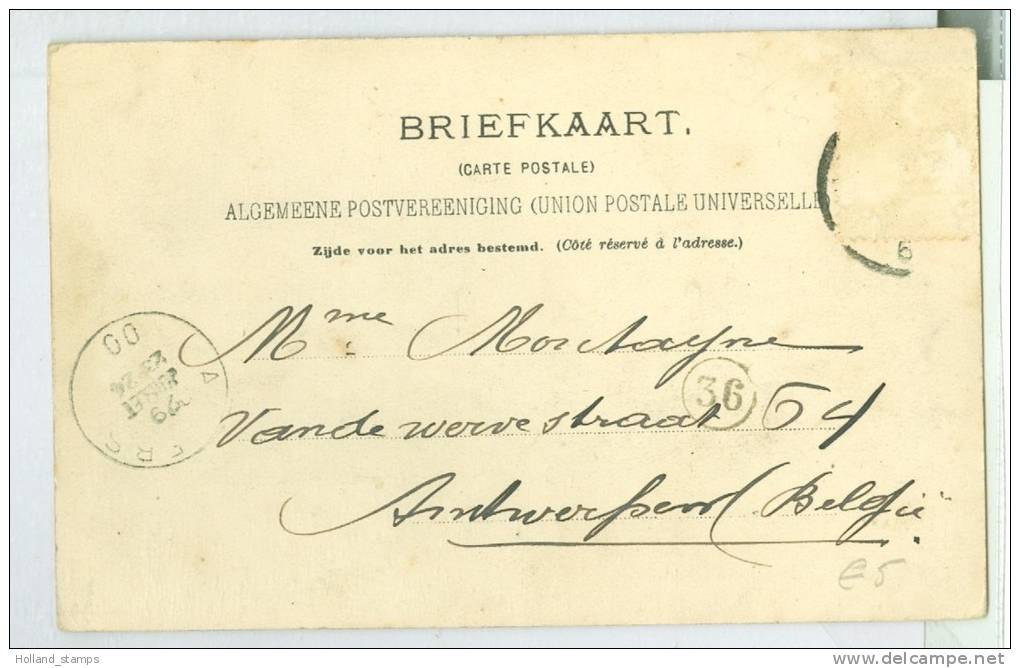 BRIEFKAART.
(CARTE POSTALE)
ALGEMEENE POSTVEREENIGING (UNION POSTALE UNIVERSELLE
Zijde voor het adres bestemd. (Côté réservé à l'adresse.)
Mme Montayne
36
Vandewervestraat 54
Antwerpen (België
€5
Holland_stamps
delcampe.net